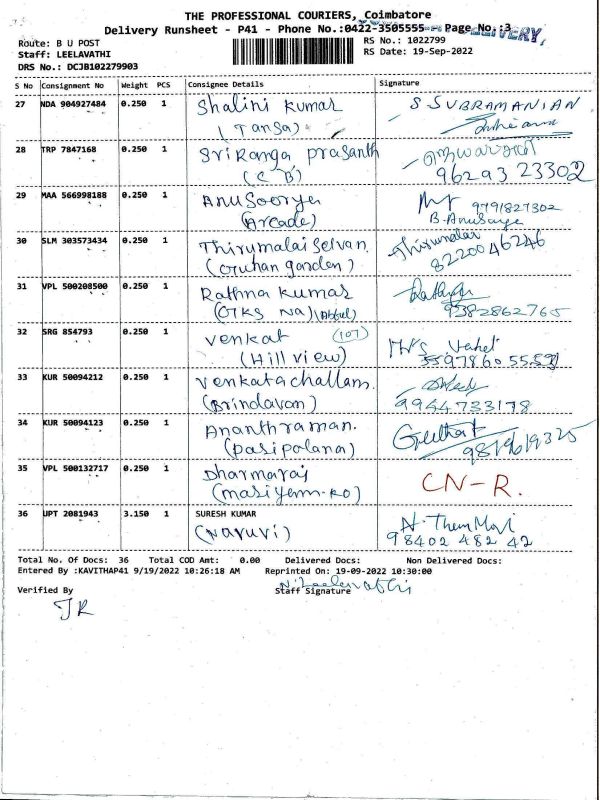 THE PROFESSIONAL COURIERS, Coimbatore
Delivery Runsheet - P41 - Phone No.:0422-3505555 Page No.:3
DELIVERY,
Route: B U POST
Staff: LEELAVATHI
DRS No.: DCJB102279903
RS No.: 1022799
RS Date: 19-Sep-2022
S No Consignment No Weight PCS Consignee Details Signature
27 NDA 904927484 0.250 1 Shalini Kumar S SUBRAMANIAN
(Tansa)
28 TRP 7847168 0.250 1 Sri Ranga prasanth
(C B) 96293 23302
29 MAA 566998188 0.250 1 Anusoorya 9791827302
(Arcade) B. Anusurya
30 SLM 303573434 0.250 1 Thirumalai Selvan Thirumalai
8220046246
31 VPL 500208500 0.250 1 Rathna Kumar
(OTKS Na) (Abdul) 9382862765
32 SRG 854793 0.250 1 Venkat (107)
(Hill view)
33 KUR 50094212 0.250 1 Venkatachallam.
(Brindavan) 9944733178
34 KUR 50094123 0.250 1 Ananthraman. Geetha
(pasipalana)
35 VPL 500132717 0.250 1 Dharmaraj CN-R.
36 UPT 2081943 3.150 1 SURESH KUMAR
(Naruvi) 98402 482 42
Total No. Of Docs: 36 Total COD Amt: 0.00 Delivered Docs: Non Delivered Docs:
Entered By :KAVITHAP41 9/19/2022 10:26:18 AM Reprinted On: 19-09-2022 10:30:00
N. Leelavathi
Verified By Staff Signature
JR